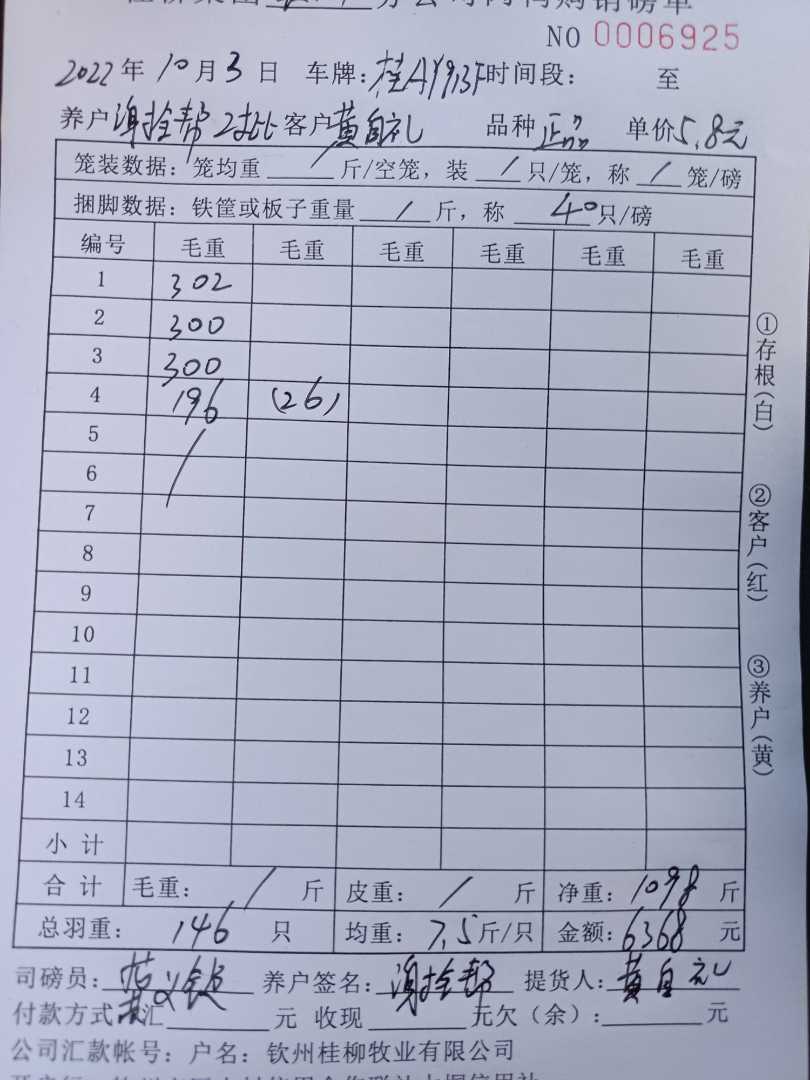 分公司肉鸭购销磅单
NO 0006925
2022年10月3日 车牌:桂AY913F时间段: 至
养户谢拴帮2批客户黄自礼 品种正品 单价5.8元
笼装数据:笼均重 / 斤/空笼,装 / 只/笼,称 / 笼/磅
捆脚数据:铁筐或板子重量 / 斤,称 40只/磅
编号 毛重 毛重 毛重 毛重 毛重 毛重
1 302
2 300
3 300
4 196 (26)
5 /
6
7
8
9
10
11
12
13
14
小计
合计 毛重: / 斤 皮重: / 斤 净重:1098斤
总羽重: 146 只 均重: 7.5斤/只 金额:6368元
司磅员: 养户签名:谢拴帮 提货人:黄自礼
付款方式 汇 元 收现 元欠(余): 元
公司汇款帐号:户名:钦州桂柳牧业有限公司
①存根(白)
②客户(红)
③养户(黄)